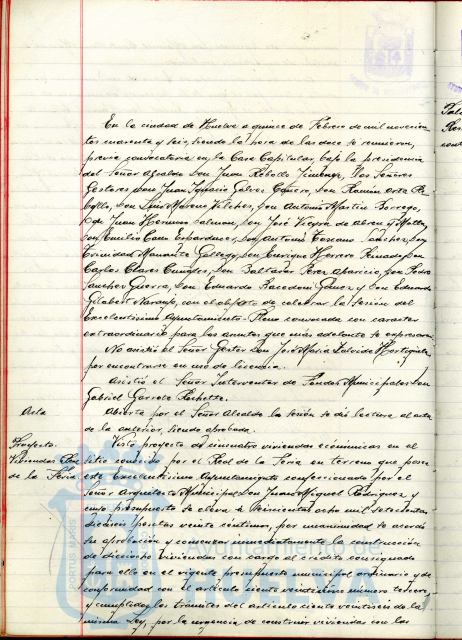 En la ciudad de Huelva a quince de Febrero de mil novecien-
tos cuarenta y seis, siendo la hora de las doce se reunieron,
previa convocatoria en la Casa Capitular, bajo la presidencia
del Señor Alcalde Don Juan Rebollo Jiménez, los Señores
Gestores Don Juan Ignacio Gálvez Cañero, Don Ramón
Don Luis Moreno Vilches, Don Antonio Martín Borrego,
Don Juan Hermoso Don José
Don Emilio Cano Don Antonio Toscano Sánchez, Don
Trinidad Don Enrique Herrero Penado, Don
Carlos Don Baltasar Pérez Aparicio, Don Pedro
Sánchez Guerra, Don Eduardo Racedo Gómez y Don Eduardo
Gilabert Naranjo, con el objeto de celebrar la sesión del
Excelentísimo Ayuntamiento Pleno convocada con carácter
extraordinario para los asuntos que más adelante se expresarán.
No asistió el Señor Gestor Don José María
por encontrarse en uso de licencia.
Asistió el Señor Interventor de Fondos Municipales Don
Gabriel Garrote
Acta
Abierta por el Señor Alcalde la sesión se dió lectura al acta
de la anterior, siendo aprobada.
Proyecto.
Viviendas Real
de la Feria
Visto proyecto de cincuenta viviendas económicas en el
sitio conocido por el Real de la Feria en terreno que posee
este Excelentísimo Ayuntamiento confeccionado por el
Señor Arquitecto Municipal Don Juan Miguel Rodríguez y
cuyo presupuesto se eleva a seiscientas ocho mil setecientas
pesetas veinte céntimos, por unanimidad se acordó
su aprobación y comenzar inmediatamente la construcción
de dieciocho viviendas con cargo al crédito consignado
para ello en el vigente presupuesto municipal ordinario y de
conformidad con el artículo ciento número tercero,
y cumplidos los tramites del artículo ciento veintiseis de la
misma Ley, por la urgencia de construir viviendas con las